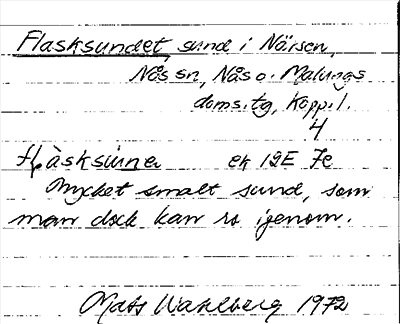 Flasksundet, sund i Närsen,
Nås sn, Nås o. Malungs
doms. tg, Kopp. l.
4
ek 12E 7e
Mycket smalt sund, som
man dock kan ro igenom.
Mats Wahlberg 1972